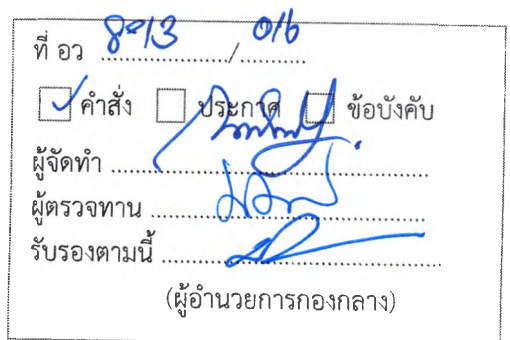 ที่ อว ............/............
☑ คำสั่ง ☐ ประกาศ ☐ ข้อบังคับ
ผู้จัดทำ ............
ผู้ตรวจทาน ............
รับรองตามนี้ ............
(ผู้อำนวยการกองกลาง)